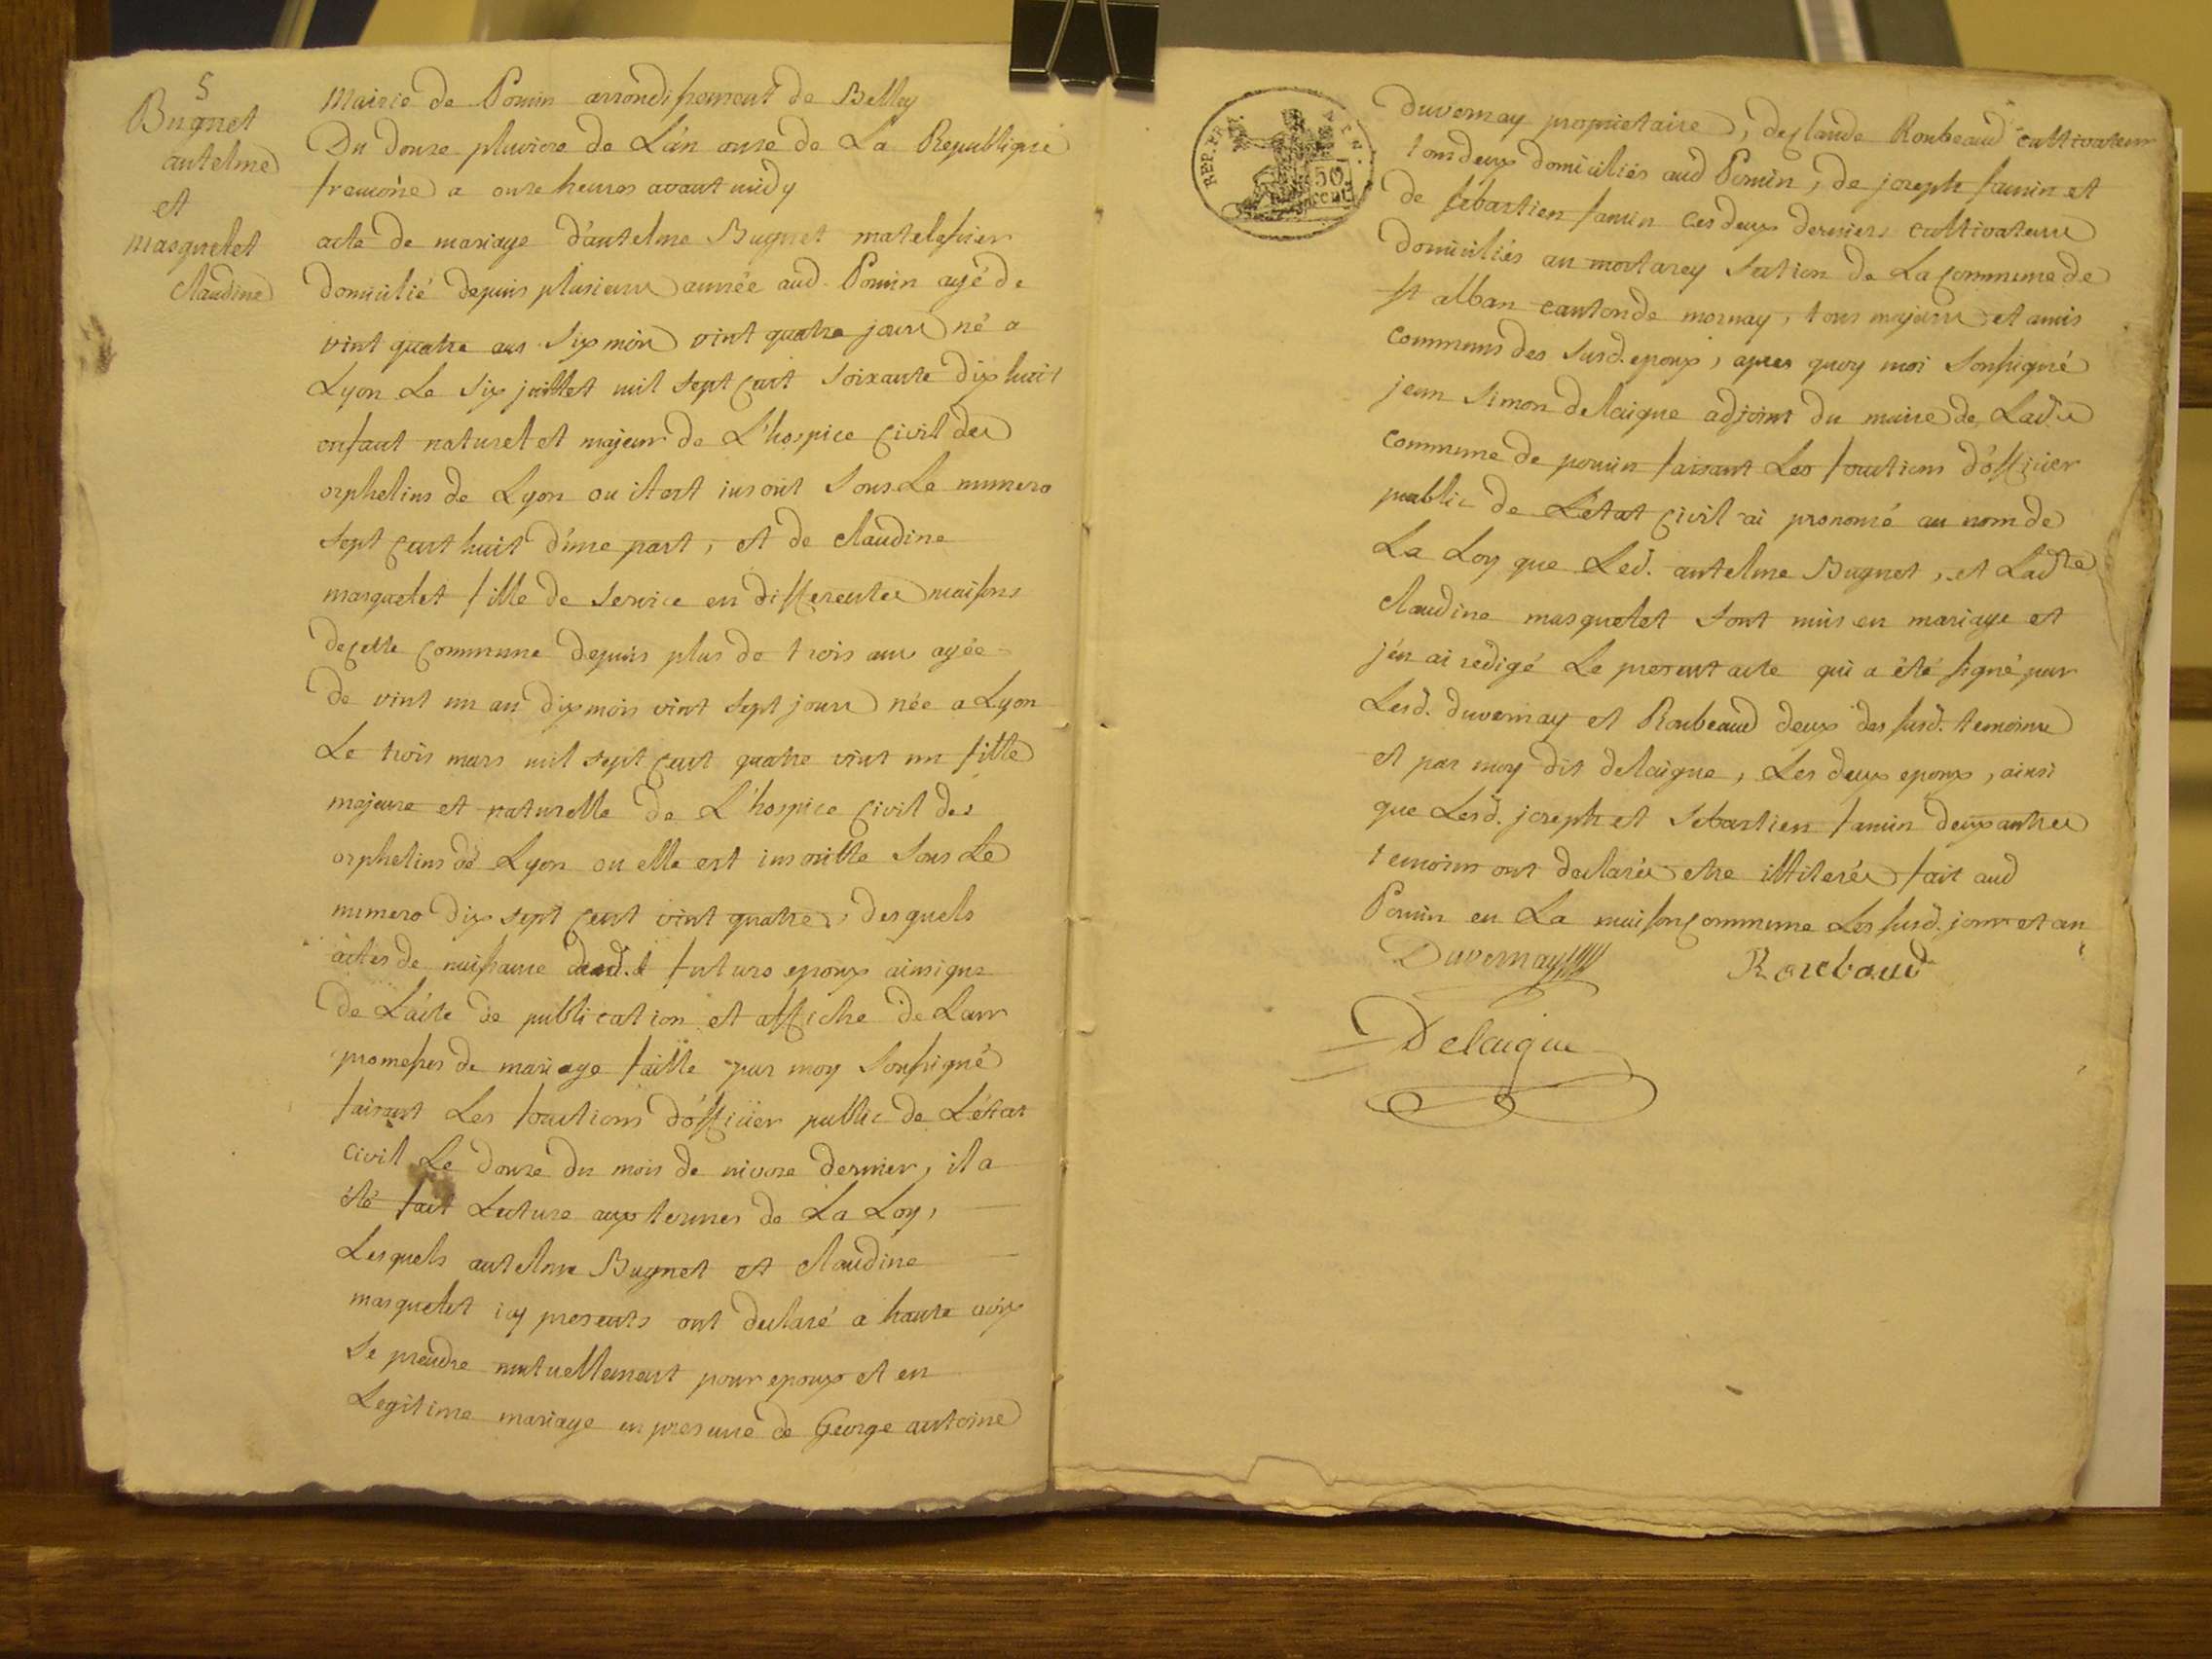 5
Bugnet
antelme
et
masquelet
Claudine
Mairie de Poncin arrondissement de Belley
Du douze pluviose de L'an onze de La Republique
francoise a onze heures avant midy
acte de mariage d'antelme Bugnet matelassier
domicilié depuis plusieurs année aud. Poncin agé de
vint quatre ans six mois vint quatre jours né a
Lyon Le six juillet mil sept cent soixante dix huit
enfant naturel et majeur de L'hospice civil des
orphelins de Lyon ou il est inscrit sous Le numero
sept cent huit d'une part, et de claudine
masquelet fille de service en differentes maisons
de cette commune depuis plus de trois ans agée
de vint un an dix mois vint sept jours née a Lyon
Le trois mars mil sept cent quatre vint un fille
majeure et naturelle de L'hospice civil des
orphelins de Lyon ou elle est inscritte sous Le
numero dix sept cent vint quatre, desquels
actes de naissance futurs epoux ainsi que
de L'acte de publication et affiche de Leur
promesses de mariage faitte par moy soussigné
faisant Les fonctions d'officier public de L'état
civil Le douze du mois de nivose dernier, il a
été fait Lecture aux termes de La Loy,
Lesquels antelme Bugnet et claudine
masquelet icy presents ont declaré a haute voix
se prendre mutuellement pour epoux et en
Legitime mariage en presence de George antoine
REP. FRA.
50 cent
duvernay proprietaire, de claude Roubeaud cultivateur
tous deux domiciliés aud Poncin, de joseph famin et
de sebastien famin ces deux derniers cultivateurs
domiciliés au mortarey section de La commune de
st alban canton de mornay, tous majeurs et amis
communs des susd. epoux, apres quoy moi soussigné
jean simon delaigue adjoint du maire de Ladte
commune de poncin faisant Les fonctions d'officier
public de L'etat civil ai prononcé au nom de
La Loy que Led. antelme Bugnet, et Ladte
claudine masquelet sont unis en mariage et
j'en ai rédigé Le present acte qui a été signé par
Lesd. duvernay et Roubeaud deux des susd. temoins
et par moy dit delaigue, Les deux epoux, ainsi
que Lesd. joseph et sebastien famin deux autres
temoins ont declarés etre illiterés fait aud
Poncin en La maison commune Les susd. jour et an
Duvernay Roubaud
Delaigue